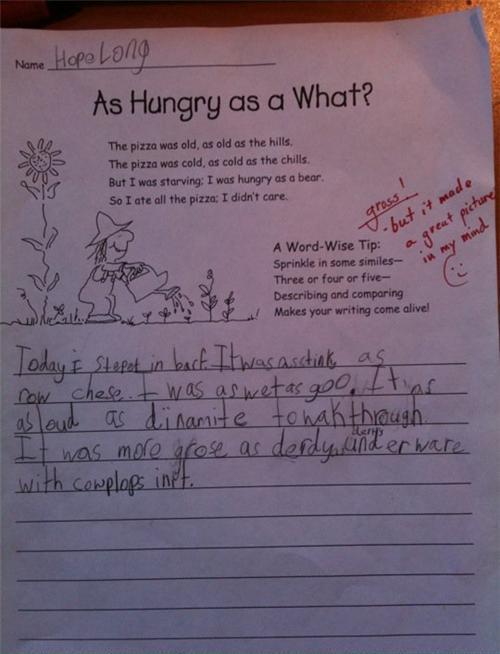 Name Hope Long
As Hungry as a What?
The pizza was old, as old as the hills.
The pizza was cold, as cold as the chills.
But I was starving; I was hungry as a bear.
So I ate all the pizza; I didn't care.
gross!
- but it made
a great picture
in my mind
A Word-Wise Tip:
Sprinkle in some similes—
Three or four or five—
Describing and comparing
Makes your writing come alive!
Today I stepet in barf. It was as stink as
row chese. I was as wet as goo. It was
as loud as dinamite to wak through
It was more grose as derdy under ware
with cowplops in it.